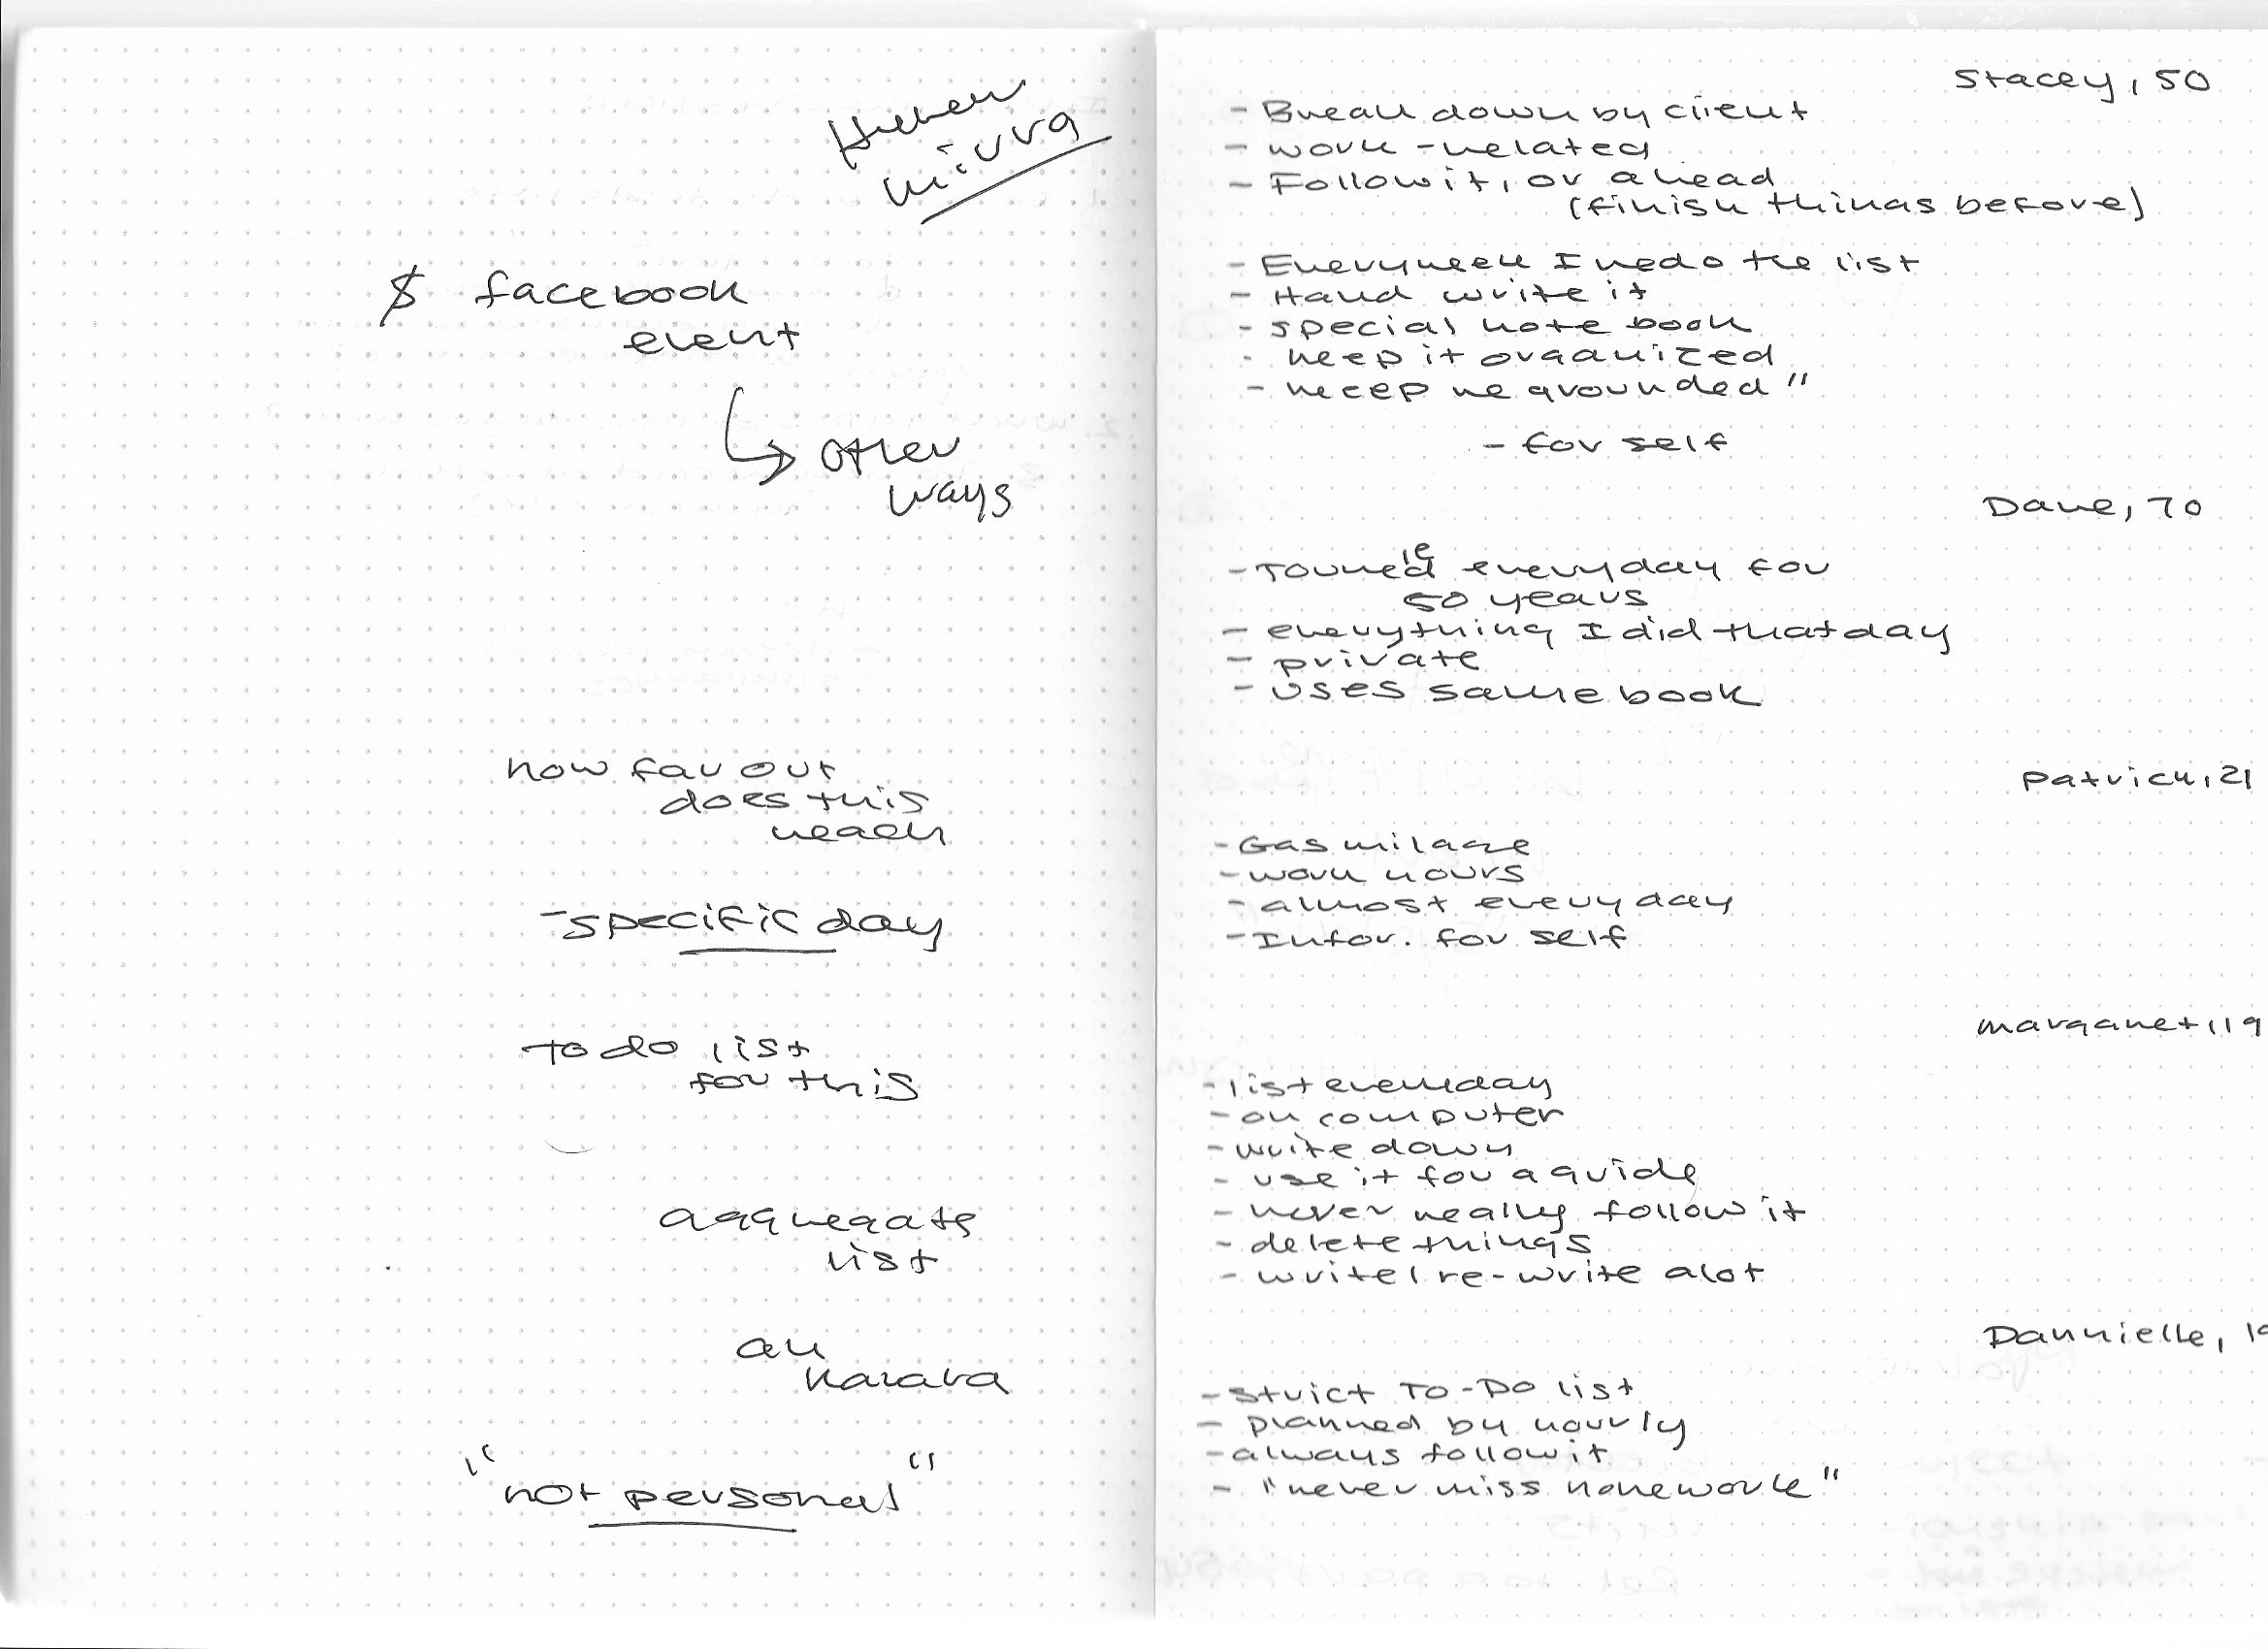 $ facebook
event
other
ways
how far out
does this
reach
- specific day
To do list
for this
aggregate
list
an
"not personal"
Stacey, 50
- Break down by client
- work-related
- Follow it, or ahead
(finish things before)
- Everyweek I redo the list
- Hand write it
- special note book
- keep it organized
- keeep me grounded"
- for self
Dave, 70
everyday for
50 years
- everything I did that day
- private
- uses same book
Patrick, 21
- Gas milage
- work hours
- almost everyday
- Infor. for self
Margaret, 19
- list everyday
- on computer
- write down
- use it for a guide
- never really follow it
- delete things
- write/re-write alot
Dannielle,
- strict To-Do list
- planned by hourly
- always follow it
- "never miss homework"